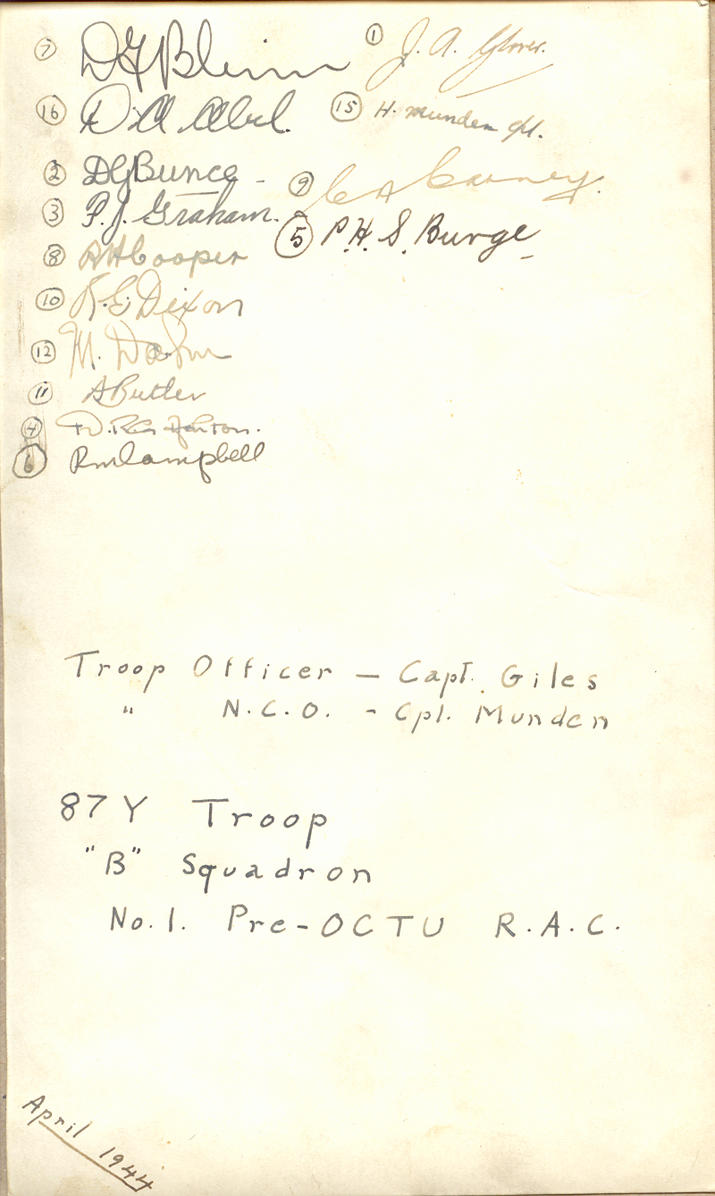 7 D.G. Blinn
1 J. A. Glover.
16 D. A. Abel.
15 H. Munden Cpl.
2 D G Bunce
9 C A Carney.
3 P. J. Graham.
5 P. H. S. Burge
8 R H Cooper
10 R. E. Dixon
12 M.
11 A Butler
4 D.
6 R M Campbell
Troop Officer — Capt. Giles
" N.C.O. - Cpl. Munden
87Y Troop
"B" Squadron
No. 1. Pre-OCTU R.A.C.
April 1944